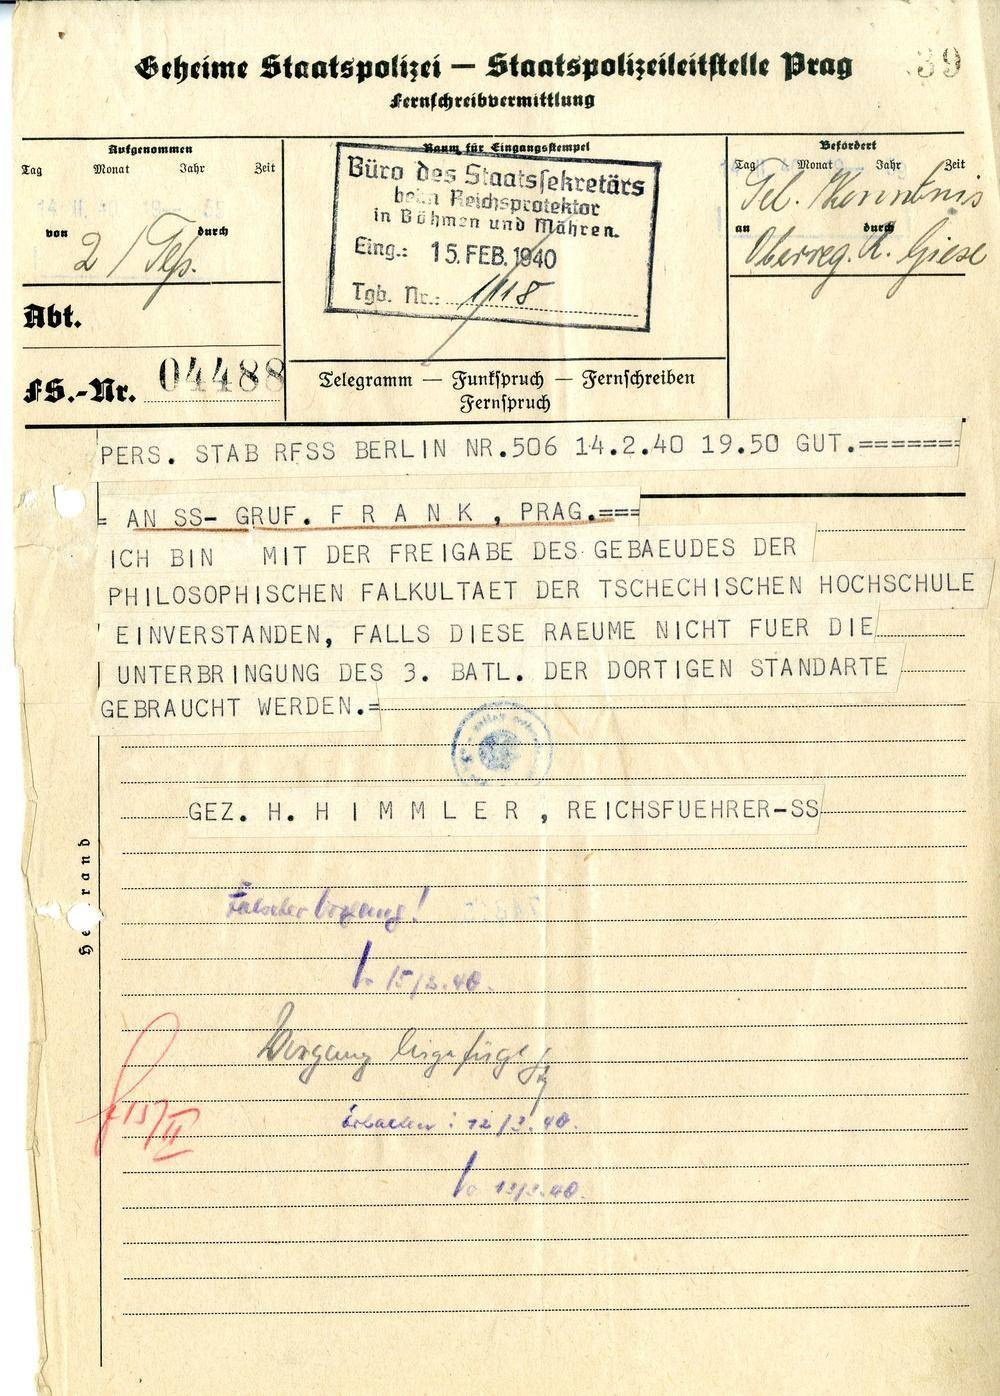 Geheime Staatspolizei — Staatspolizeileitstelle Prag
39
Fernschreibvermittlung
Aufgenommen
Tag Monat Jahr Zeit
von durch
2 /
Raum für Eingangsstempel
Büro des Staatssekretärs
beim Reichsprotektor
in Böhmen und Mähren.
Eing.: 15. FEB. 1940
Tgb. Nr.:
Befördert
Tag Monat Jahr Zeit
Tel. / Kenntnis
an durch
Oberreg. R. Giese
Abt.
FS.-Nr. 04488
Telegramm — Funkspruch — Fernschreiben
Fernspruch
PERS. STAB RFSS BERLIN NR.506 14.2.40 19.50 GUT.=======
= AN SS- GRUF. F R A N K , PRAG.===
ICH BIN MIT DER FREIGABE DES GEBAEUDES DER
PHILOSOPHISCHEN FALKULTAET DER TSCHECHISCHEN HOCHSCHULE
EINVERSTANDEN, FALLS DIESE RAEUME NICHT FUER DIE
UNTERBRINGUNG DES 3. BATL. DER DORTIGEN STANDARTE
GEBRAUCHT WERDEN.=
GEZ. H. H I M M L E R , REICHSFUEHRER-SS
Falscher Vorgang!
15/2.40.
Vorgang beigefügt
15/II
12/3.40.
13/3.40.